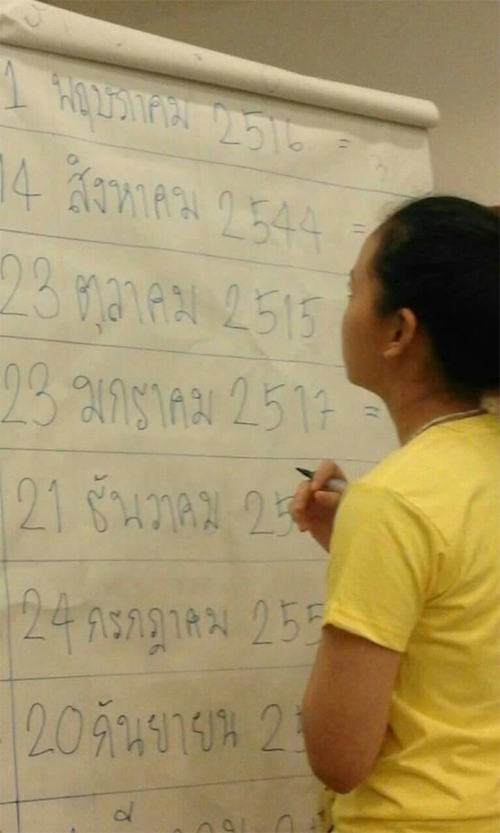 1 พฤษภาคม 2516 =
14 สิงหาคม 2544 =
23 ตุลาคม 2515
23 มกราคม 2517 =
21 ธันวาคม 25
24 กรกฎาคม 255
20 กันยายน 25